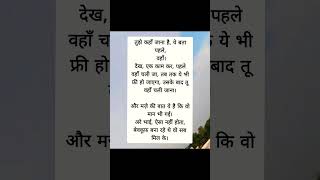 तुझे कहाँ जाना है, ये बता
पहले,
वहाँ।
देख, एक काम कर, पहले
वहाँ चली जा, तब तक ये भी
फ्री हो जाएगा, उसके बाद तू
वहाँ चली जाना।
और मज़े की बात ये है कि वो
मान भी गई।
अरे भाई, ऐसा नहीं होता,
बेवकूफ़ बना रहे थे वो सब
मिल के।